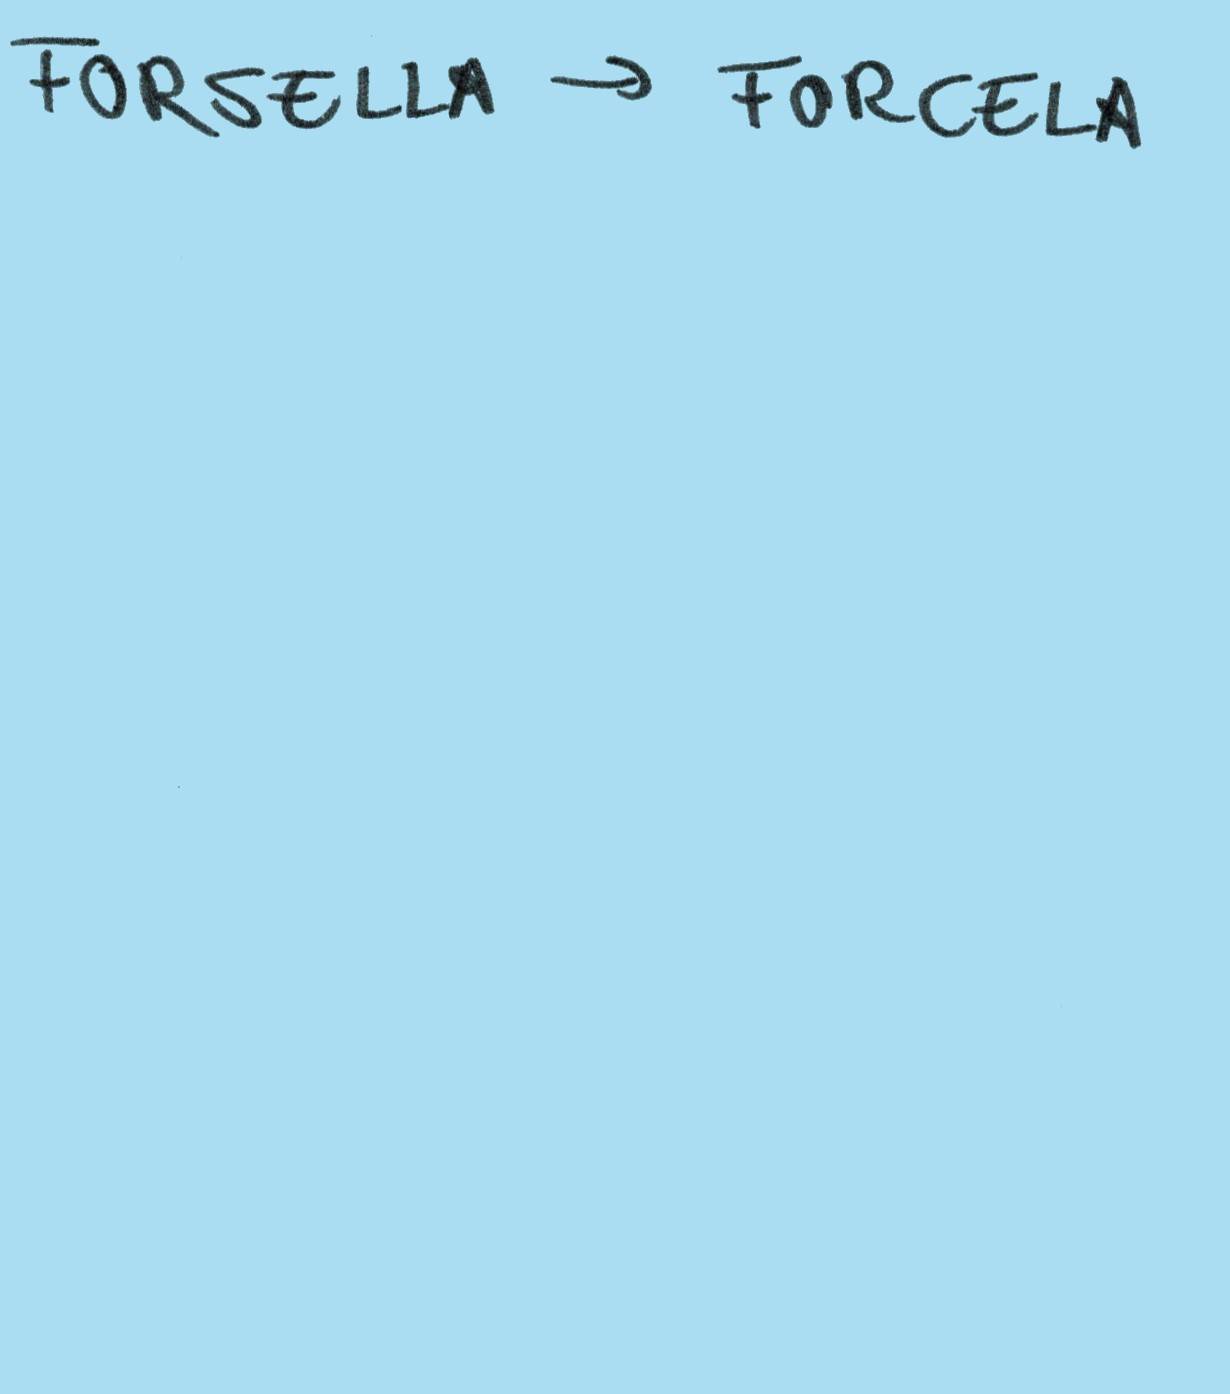 FORSELLA → FORCELA